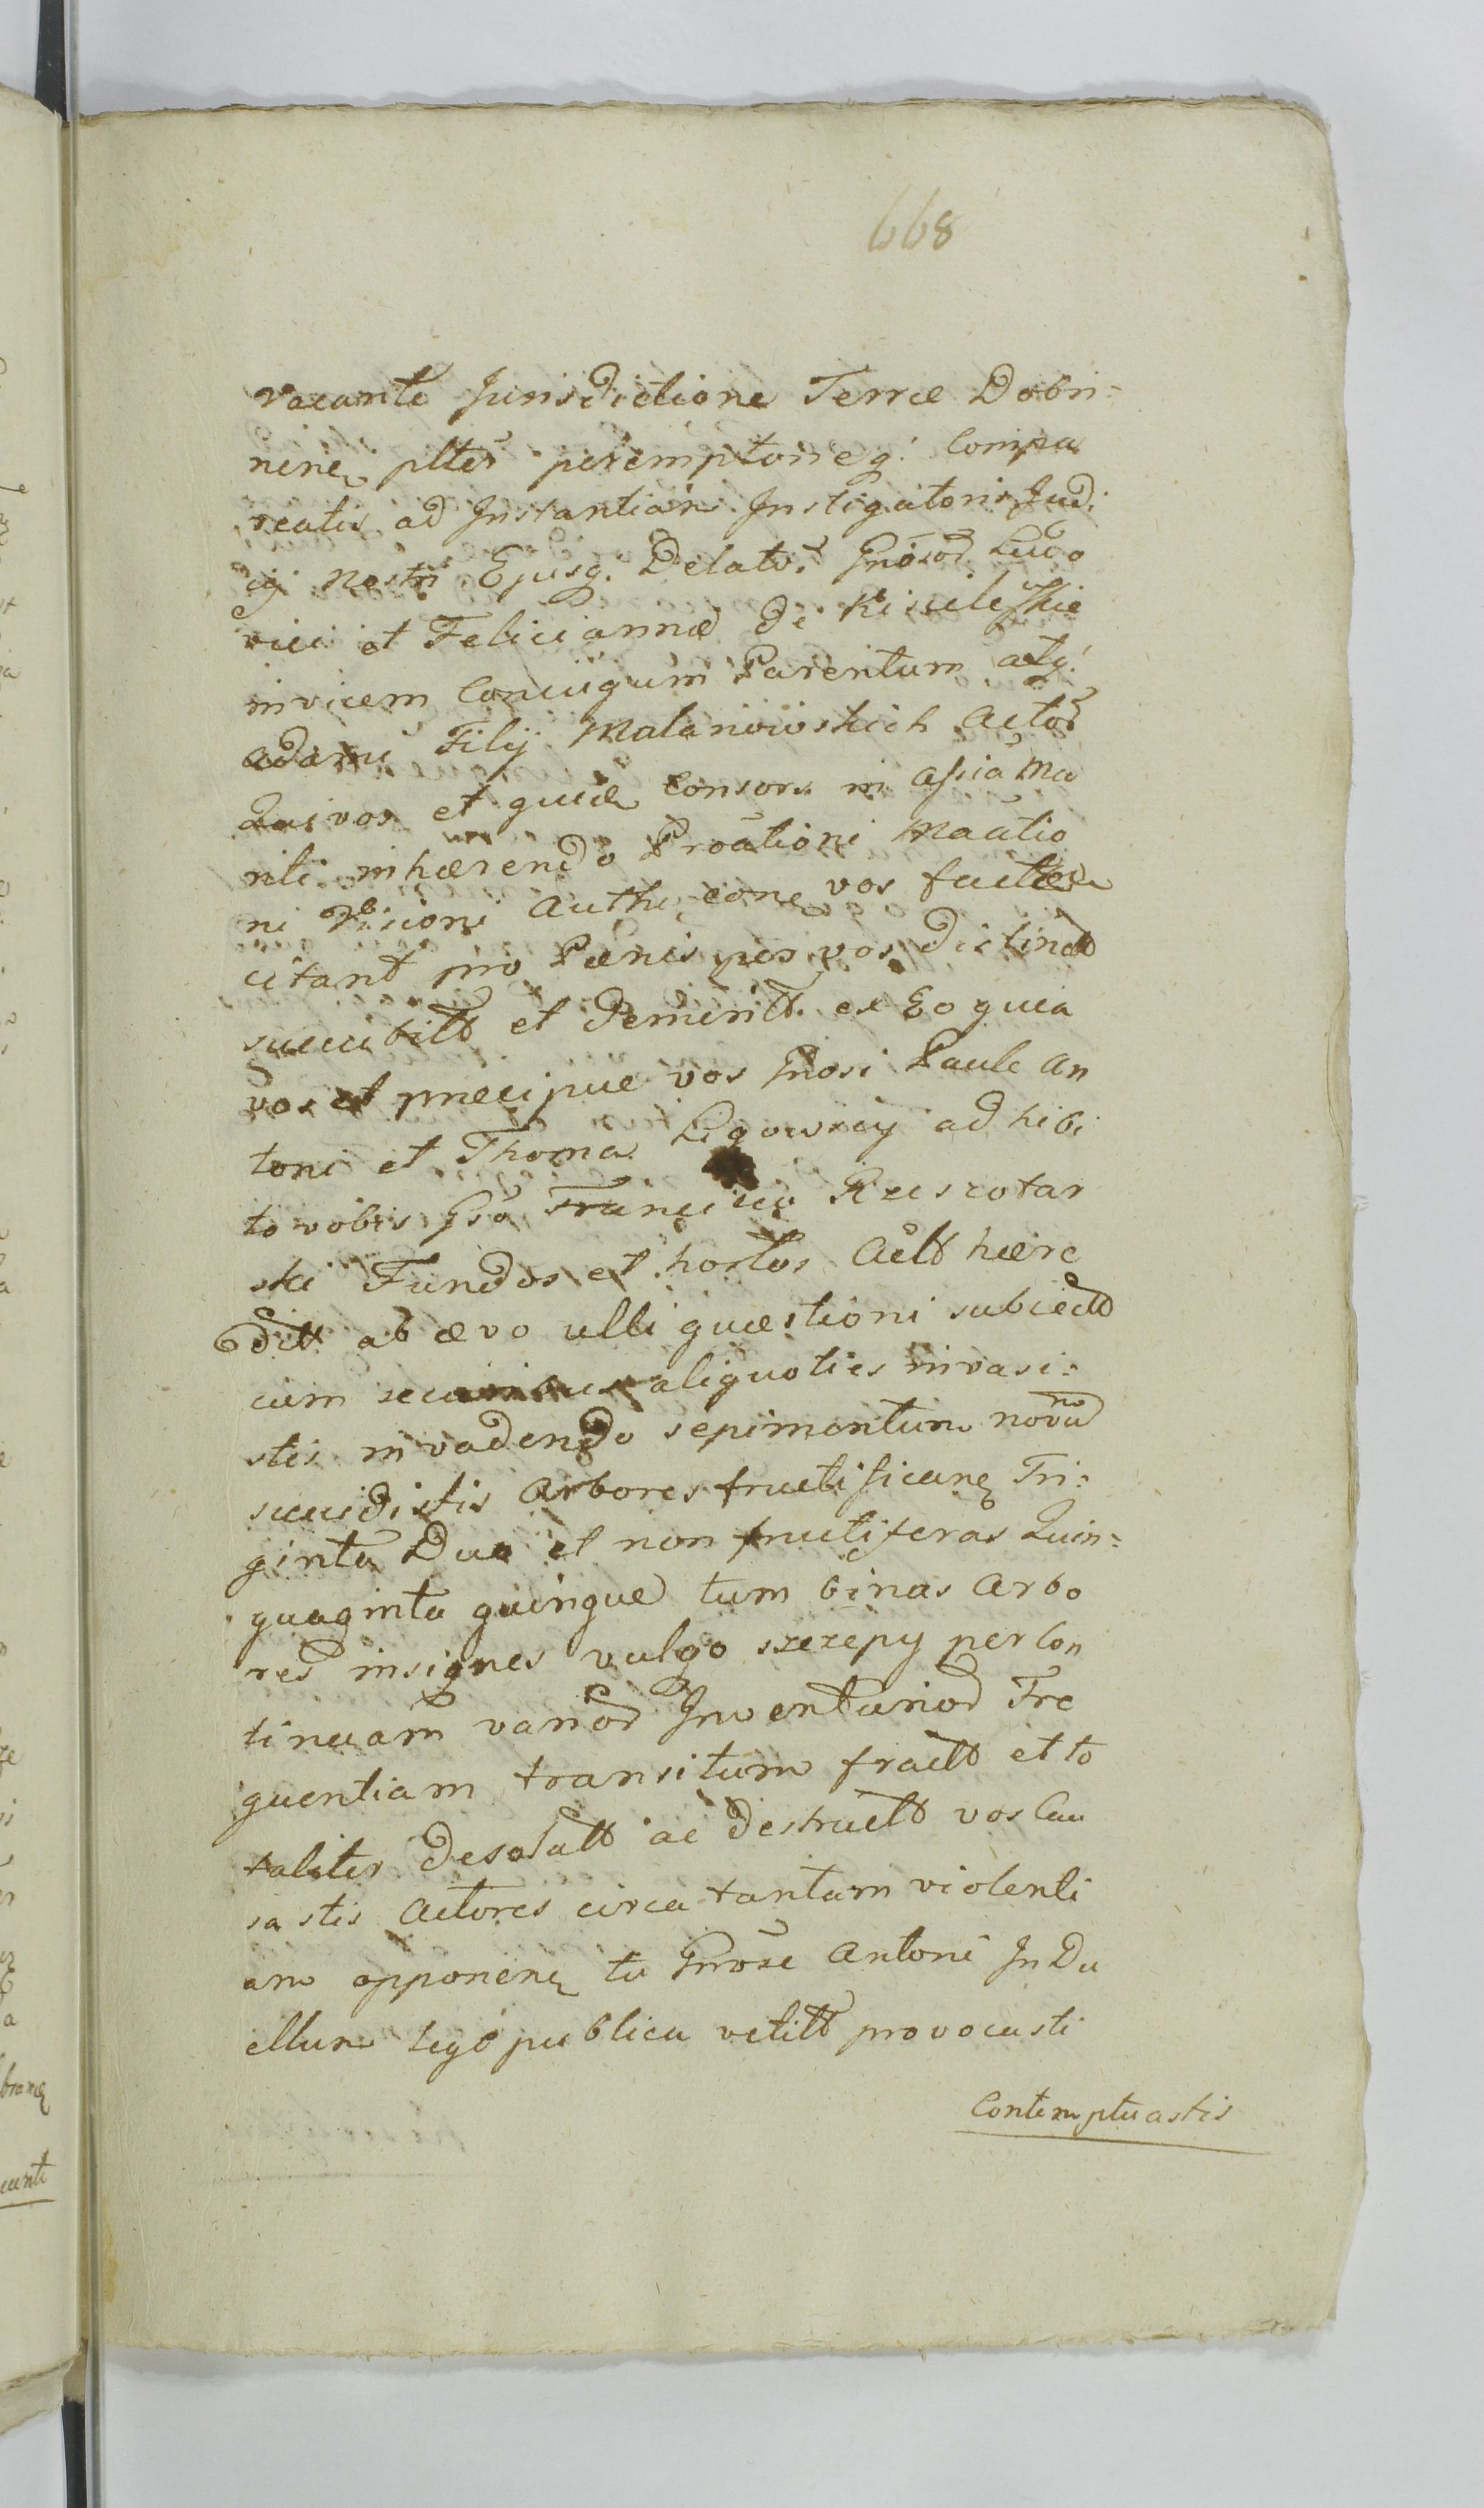 668
vacante Jurisdictione Terræ Dobri=
nenę plter peremptorieq. Compa
reatis ad Instantiam Instigatoris Judi
cij nostri Ejusq. Delator Gnosor Ludo
vici et Feliciannæ de Kisieleskie
invicem Conjugum Parentum atq.
Adami Filij Malanowskich Actor
Qui vos et quidę Consors in assīa Ma
riti inhærendo Proationi Mautio
ni Visioni Authę conę vos factæ
citant pro Pænis per vos distinctt
succubitt et demeritt. ex Eo quia
vos et præcipue vos Gnosi Paule An
toni et Thoma Ligowscy adhibi
to vobis Gso Francisco Rzeszotar
ski Fundos et hortos Actt hære
ditt ab ævo ulli quæstioni subiectt
cum securibus aliquoties invasi=
stis invadendo sepimentum novū
succidistis Arbores fructificanę Tri=
ginta Duo et non fructiferas Quin=
quaginta quinque tum binas Arbo
res insignes vulgo szczepy per Con
tinuam varior Inventarior Fre
quentiam transitum fractt et to
taliter desolatt ac destructt vos Cau
sastis Actores circa tantam violenti
am opponenę tu Gnose Antoni In Du
ellum lege publica vetitt provocasti
Contemptuastis